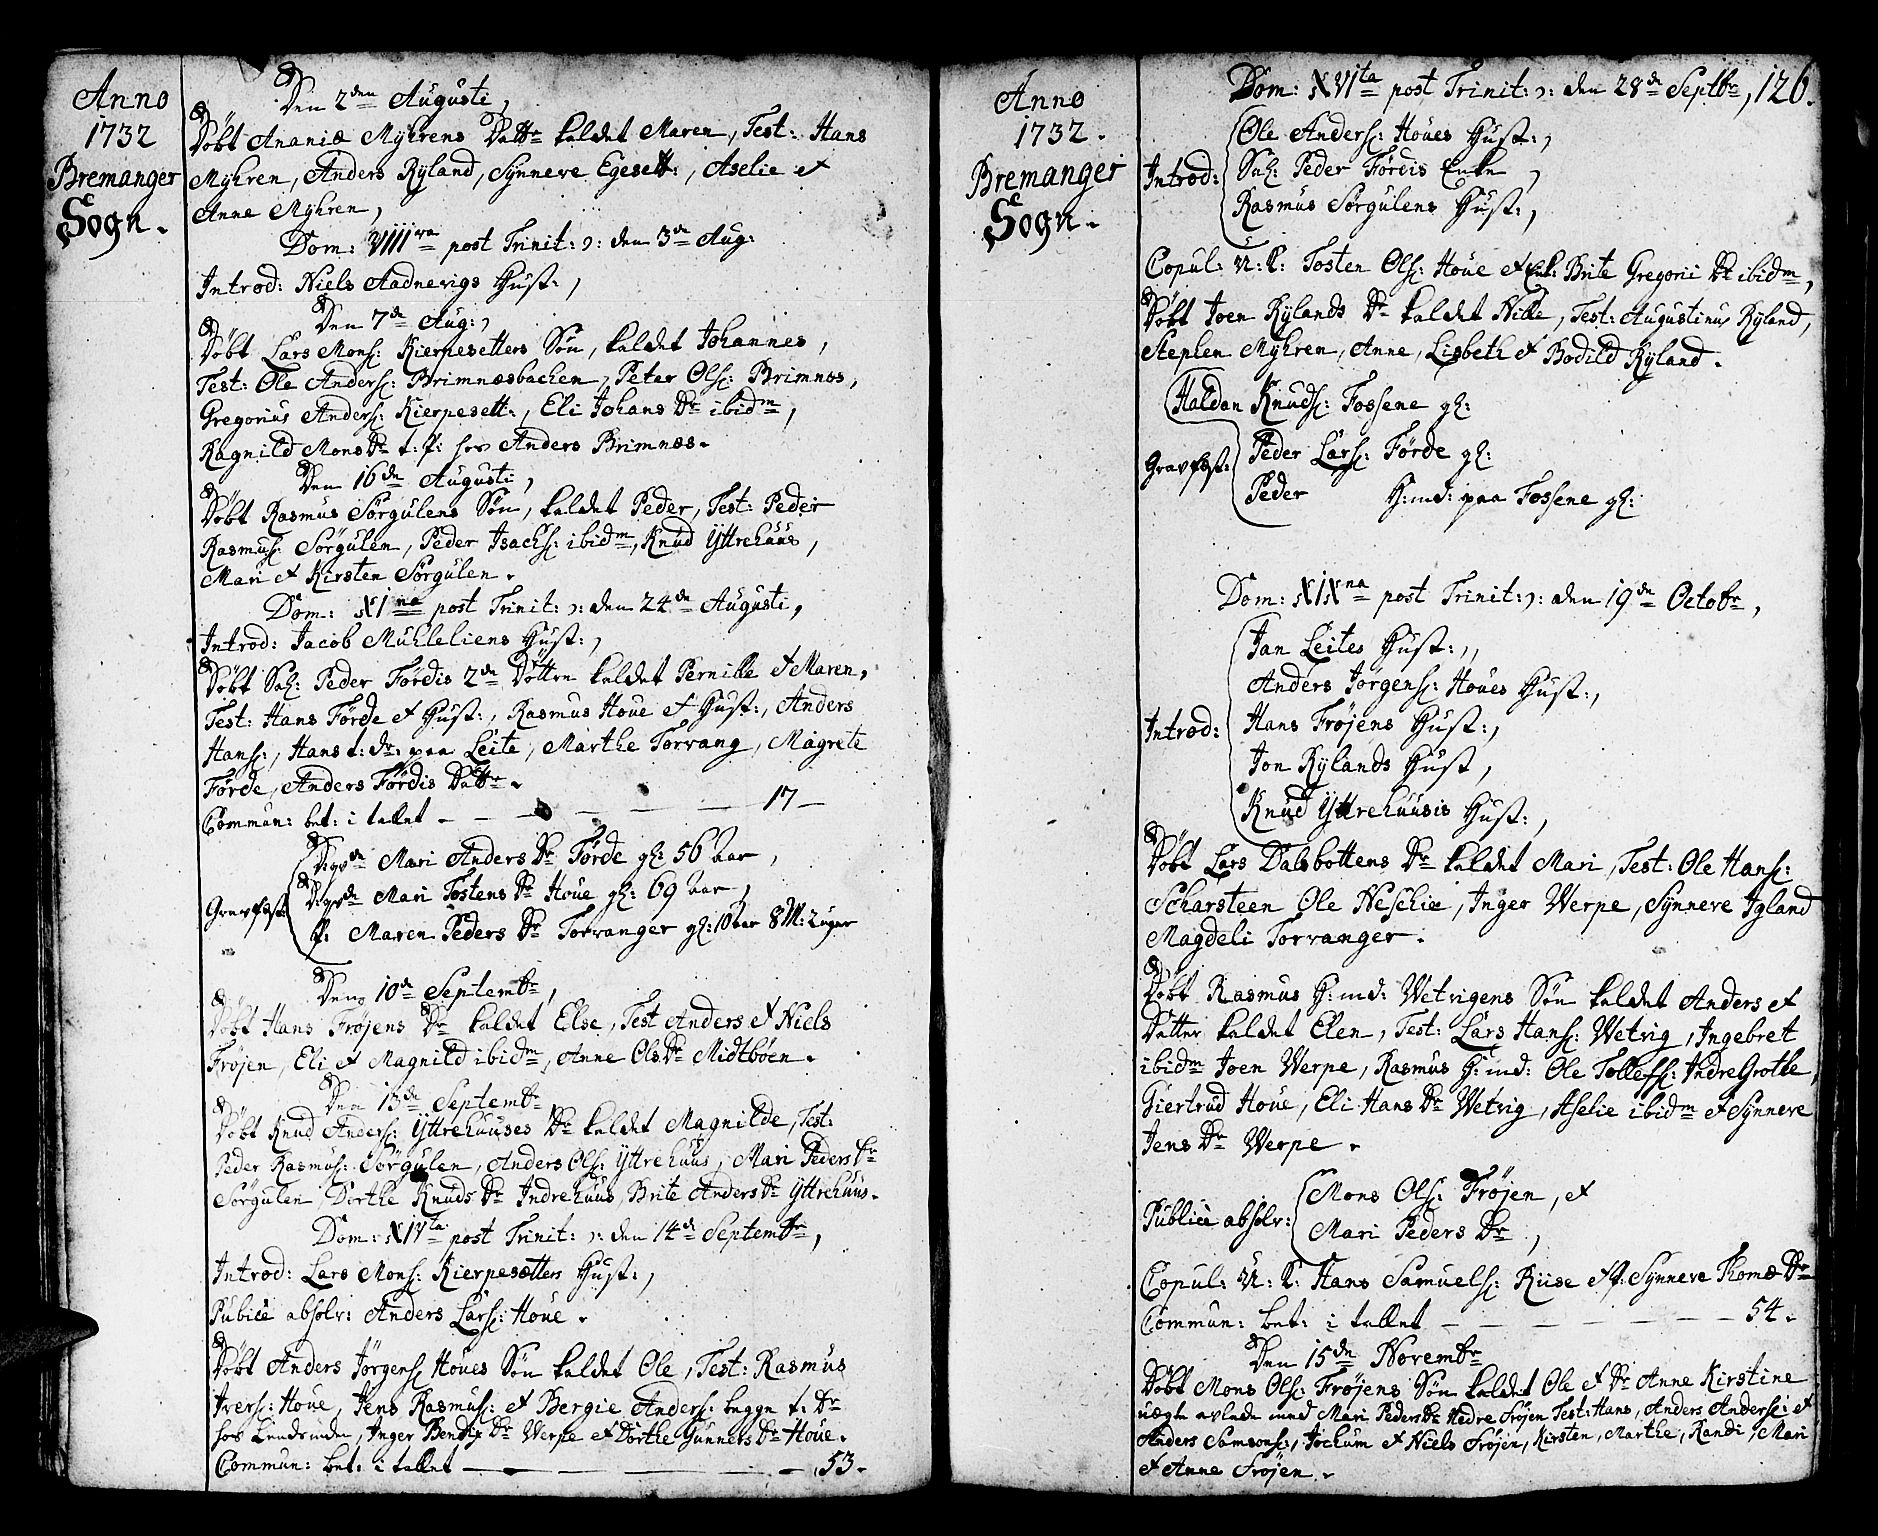 Anno
1732
Bremanger
Sogn.
Den 2den Augusti,
Döbt Ananiæ Myhrens Dattr kaldet Maren, Test: Hans
Myhren, Anders Ryland, Synneve Egesett:, Aselie et
Anne Myhren,
Dom: VIIIva post Trinit: ɔ: den 3de Aug:
Introd: Niels Aadnevigs Hust:,
Den 7de Aug:,
Döbt Lars Mons: Kierpesetters Sön, kaldet Johannes,
Test: Ole Anders: Brimnæsbachen, Peter Ols: Brimnæs,
Gregorius Anders: Kierpesett:, Eli Johans Dr ibidm,
Ragnild Mons Dr t: p: hos Anders Brimnæs.
Den 16de Augusti,
Döbt Rasmus Sörgulens Sön, kaldet Peder, Test: Peder
Rasmus: Sörgulen, Peder Isachs: ibidm, Knud Yttrehuus,
Mari et Kirsten Sörgulen.
Dom: XIma post Trinit: ɔ: den 24de Augusti,
Introd: Jacob Muhleliens Hust:,
Döbt Sal: Peder Fördis 2de Döttre kaldet Pernille et Maren,
Test: Hans Förde et Hust:, Rasmus Houe et Hust:, Anders
Hans:, Hans t: dr: paa Leite, Marthe Torvang, Magrete
Förde, Anders Fördis Dattr.
Commun: bet: i tallet — — — — — — 17 —
Gravfæst:
Digvde Mari Anders Dr Förde gl: 56 Aar,
Digvde Mari Tostens Dr Houe gl: 69 Aar,
p: Maren Peders Dr Torvanger gl: 10 aar 8 M: 2 uger
Den 10de Septembr,
Döbt Hans Fröjens Dr kaldet Else, Test Anders et Niels
Fröjen, Eli et Magnild ibidm, Anne Ols Dr Midtböen.
Den 13de Septembr,
Döbt Knud Anders: Yttrehuuses Dr kaldet Magnilde, Test:
Peder Rasmus: Sörgulen, Anders Ols: Yttrehuus, Mari Peders Dr
Sörgulen, Dorthe Knuds Dr Indrehuus, Brite Anders Dr Yttrehuus.
Dom: XIVta post Trinit: ɔ: den 14de Septembr,
Introd: Lars Mons: Kierpesætters Hust:,
Publicè absolv: Anders Lars: Houe.
Döbt Anders Jörgens: Houes Sön kaldet Ole, Test: Rasmus
Ivers: Houe, Jens Rasmus: et Bergie Anders: begge t: Dr
hos Lensmanden, Inger Bendix Dr Werpe et Dorthe Gunners Dr Houe.
Commun: bet: i tallet — — — — — 53.
Anno
1732.
Bremanger
Sogn.
126.
Dom: XVIta post Trinit: ɔ: den 28de Septbr,
Introd:
Ole Anders: Houes Hust:,
Sal: Peder Fördis Enke,
Rasmus Sörgulens Hust:,
Copul: U: K: Tosten Ols: Houe et Enk: Brite Gregorii Dr ibidm,
Döbt Joen Rylands Dr kaldet Nille, Test: Augustinus Ryland,
Stephen Myhren, Anne, Lisbeth et Bodild Ryland.
Gravfæst:
Haldan Knuds: Fossene gl:
Peder Lars: Förde gl:
Peder H:md: paa Fossene gl:
Dom: XIXna post Trinit: ɔ: den 19de Octobr,
Introd:
Jan Leites Hust:,
Anders Jörgens: Houes Hust:,
Hans Fröjens Hust:,
Jon Rylands Hust,
Knud Yttrehuusis Hust:,
Döbt Lars Dalsbottens Dr kaldet Mari, Test: Ole Hans:
Scharsteen Ole Neschie, Inger Werpe, Synneve Igland
Magdeli Torvanger.
Döbt Rasmus H:md: Wetvigens Sön kaldet Anders et
Datter kaldet Elen, Test: Lars Hans: Wetvig, Ingebret
ibidm Joen Werpe, Rasmus H:md: Ole Tollefs: Indre Grotle,
Giertrud Houe, Eli Hans Dr Wetvig, Aselie ibidm et Synneve
Jens Dr Werpe.
Publicè absolv:
Mons Ols: Fröjen, et
Mari Peders Dr,
Copul: U: K: Hans Samuels: Riise et p: Synneve Thomæ Dr
Commun: bet: i tallet — — — — — — — 54.
Den 15de Novembr
Döbt Mons Ols: Fröjens Sön kaldet Ole et Dr Anne Kirstine
uægte avlede med Mari Peders Dr Nedre Fröjen Test: Hans, Anders Anders: et
Anders Samsons:, Jochum et Niels Fröjen, Kirsten, Marthe, Randi, Mari
et Anne Fröjen.